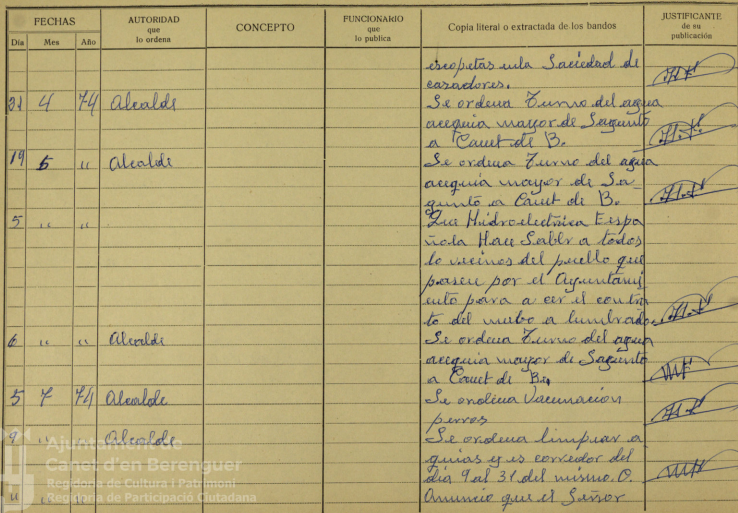 FECHAS AUTORIDAD que lo ordena CONCEPTO FUNCIONARIO que lo publica Copia literal o extractada de los bandos JUSTIFICANTE de su publicación
Día Mes Año
escopetas enla Saciedad de
casadores.
31 4 74 Alcalde Se ordena Turno del agua
acequia mayor de Sagunto
a Canet de B.
19 5 " Alcalde Se ordena Turno del agua
acequia mayor de Sa
gunto a Canet de B.
5 " " Que Hidroelectrica Espa
ñola Hace Sabler a todos
lo vecinos del puello que
pasen por el Ayuntami
ento para a cer el contra
to del nuebo a lumbrado.
6 " " Alcalde Se ordena Turno del agua
acequia mayor de Sagunto
a Canet de B.
5 7 74 Alcalde Se ordena Vacunacion
perros
9 " " Alcalde Se ordena limpiar a
quias y es corredor del
dia 9 al 31 del mismo. O.
" " " Anuncio que el Señor
Ajuntament de
Canet d'en Berenguer
Regidoria de Cultura i Patrimoni
Regidoria de Participació Ciutadana